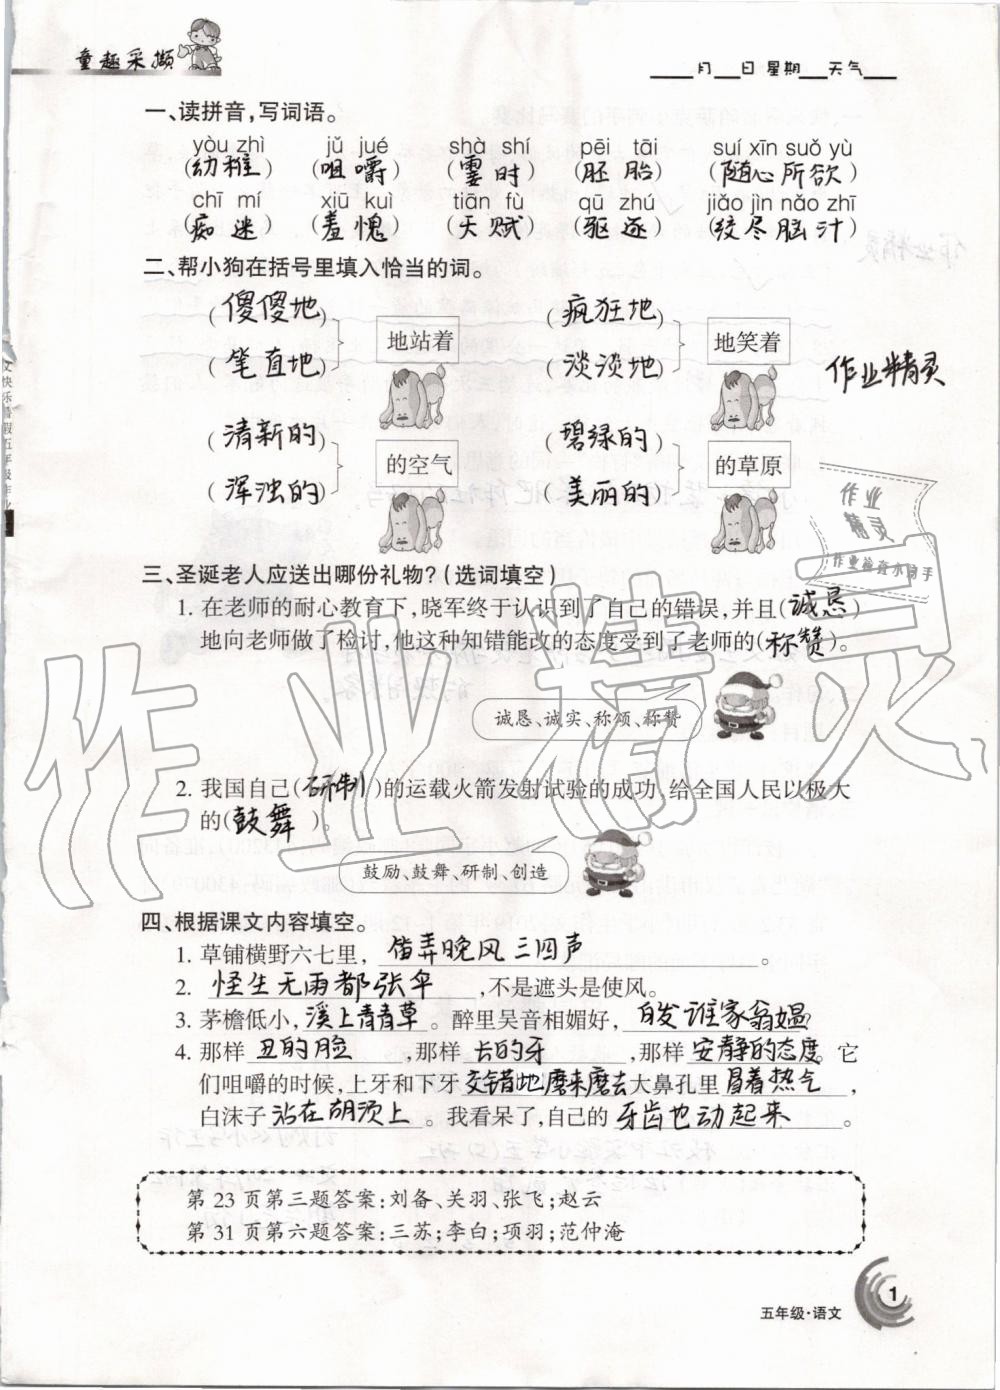 童趣采撷
____月____日 星期____天气____
一、读拼音，写词语。
yòu zhì jǔ jué shà shí pēi tāi suí xīn suǒ yù
(幼稚) (咀嚼) (霎时) (胚胎) (随心所欲)
chī mí xiū kuì tiān fù qū zhú jiǎo jìn nǎo zhī
(痴迷) (羞愧) (天赋) (驱逐) (绞尽脑汁)
二、帮小狗在括号里填入恰当的词。
(傻傻地) (疯狂地)
地站着 地笑着
(笔直地) (淡淡地)
作业精灵
(清新的) (碧绿的)
的空气 的草原
(浑浊的) (美丽的)
作业
精灵
三、圣诞老人应送出哪份礼物?(选词填空)
1. 在老师的耐心教育下,晓军终于认识到了自己的错误,并且(诚恳)
地向老师做了检讨,他这种知错能改的态度受到了老师的(称赞)。
诚恳、诚实、称颂、称赞
2. 我国自己(研制)的运载火箭发射试验的成功,给全国人民以极大
的(鼓舞)。
鼓励、鼓舞、研制、创造
四、根据课文内容填空。
1. 草铺横野六七里, 笛弄晚风三四声。
2. 怪生无雨都张伞,不是遮头是使风。
3. 茅檐低小, 溪上青青草。醉里吴音相媚好, 白发谁家翁媪?
4. 那样 丑的脸 ,那样 长的牙 ,那样 安静的态度。它
们咀嚼的时候,上牙和下牙 交错地磨来磨去 大鼻孔里 冒着热气 ,
白沫子 沾在胡须上 。我看呆了,自己的 牙齿也动起来 。
第 23 页第三题答案:刘备、关羽、张飞;赵云
第 31 页第六题答案:三苏;李白;项羽;范仲淹
1
五年级·语文
文快乐暑假五年级作业
作业精灵